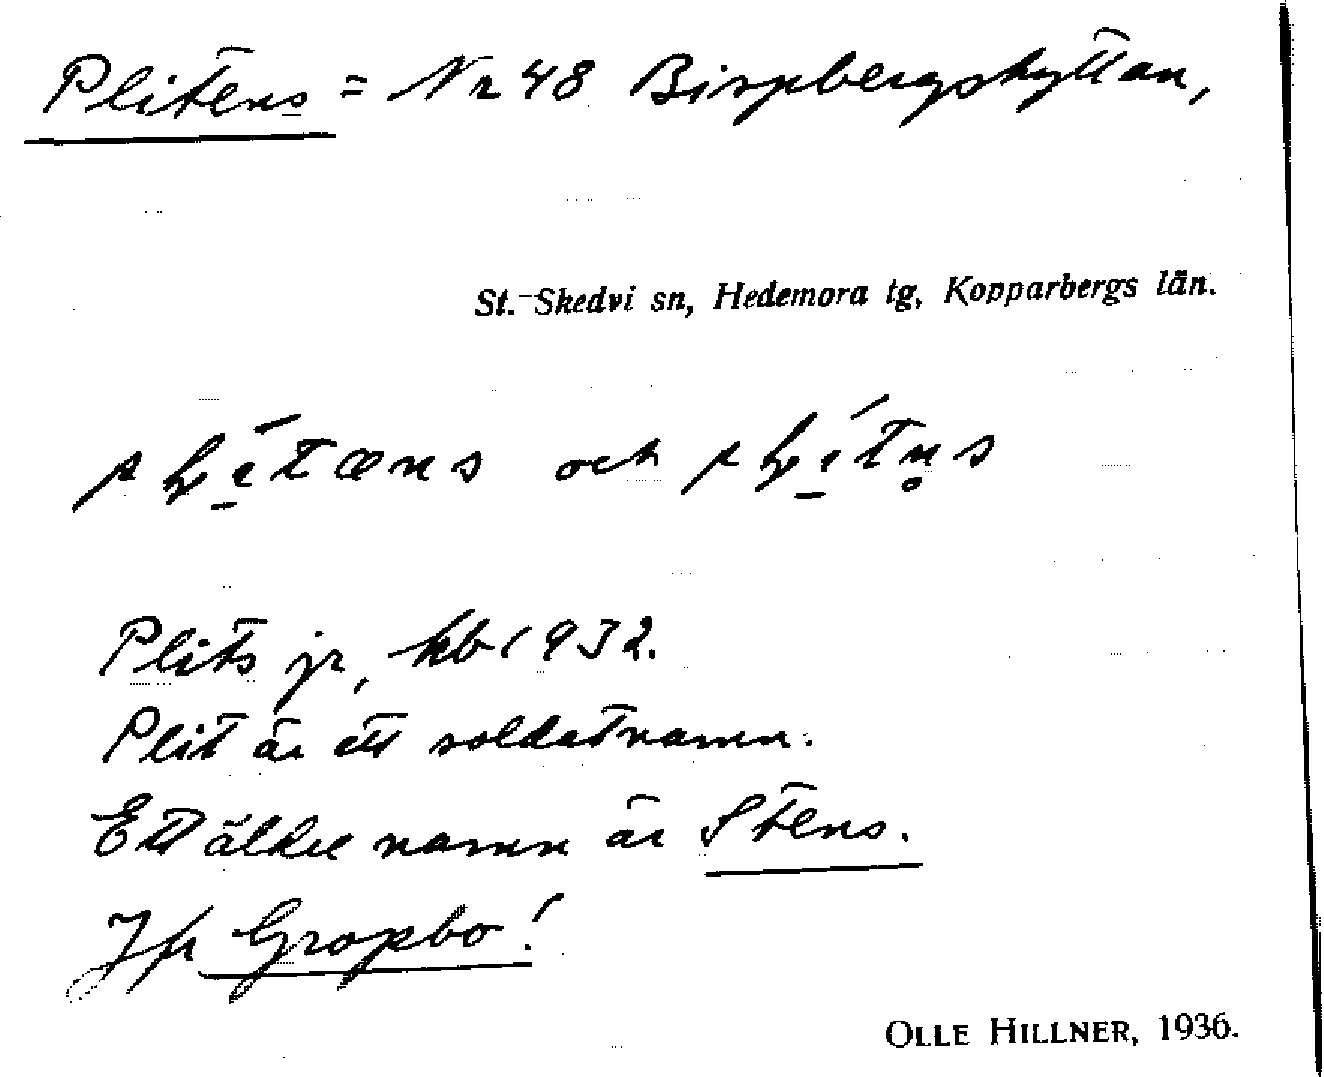 Plitens = Nr 48 Bispbergshyttan,
St. Skedvi sn, Hedemora tg, Kopparbergs län.
och
Plits jr, kb 1932.
Plit är ett soldatnamn.
Ett äldre namn är Stens.
Jfr Gropbo!
OLLE HILLNER, 1936.